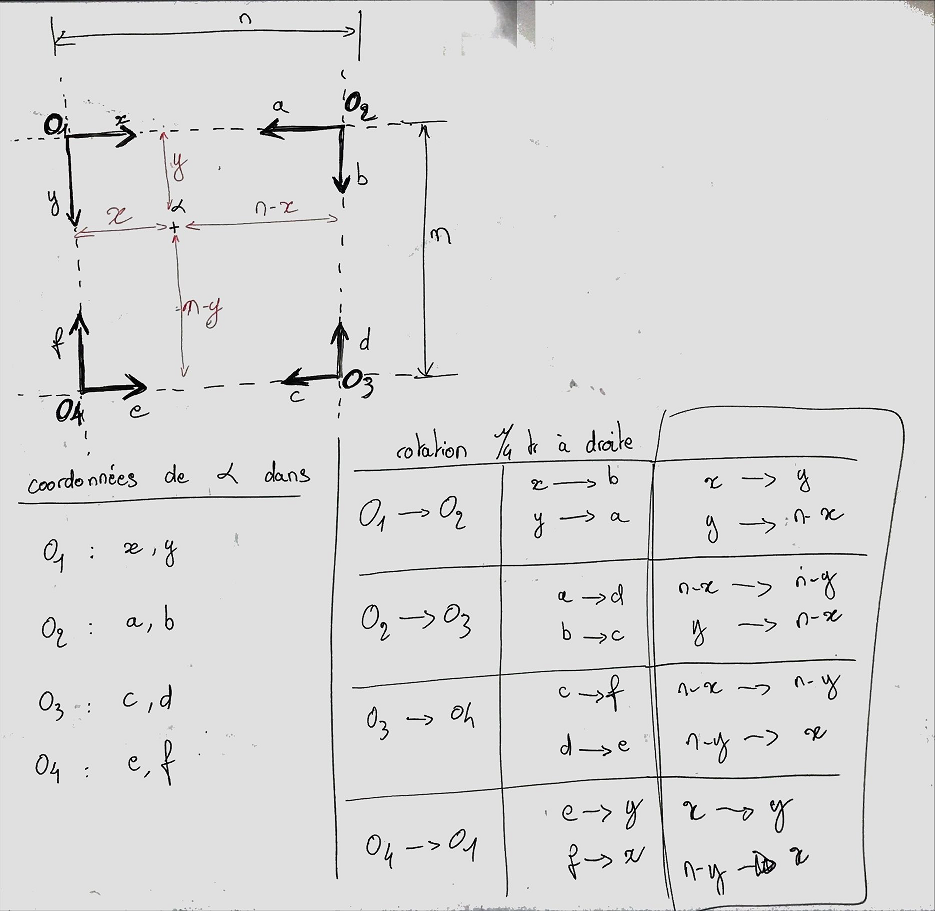 n
O1
x
a
O2
y
b
y
α
x
n-x
m
n-y
f
d
O4
e
c
O3
coordonnées de α dans
O1 : x, y
O2 : a, b
O3 : c, d
O4 : e, f
rotation 1/4 tr à droite
O1 → O2
x → b
y → a
x → y
y → n-x
O2 → O3
a → d
b → c
n-x → n-y
y → n-x
O3 → O4
c → f
d → e
n-x → n-y
n-y → x
O4 → O1
e → y
f → x
x → y
n-y → x